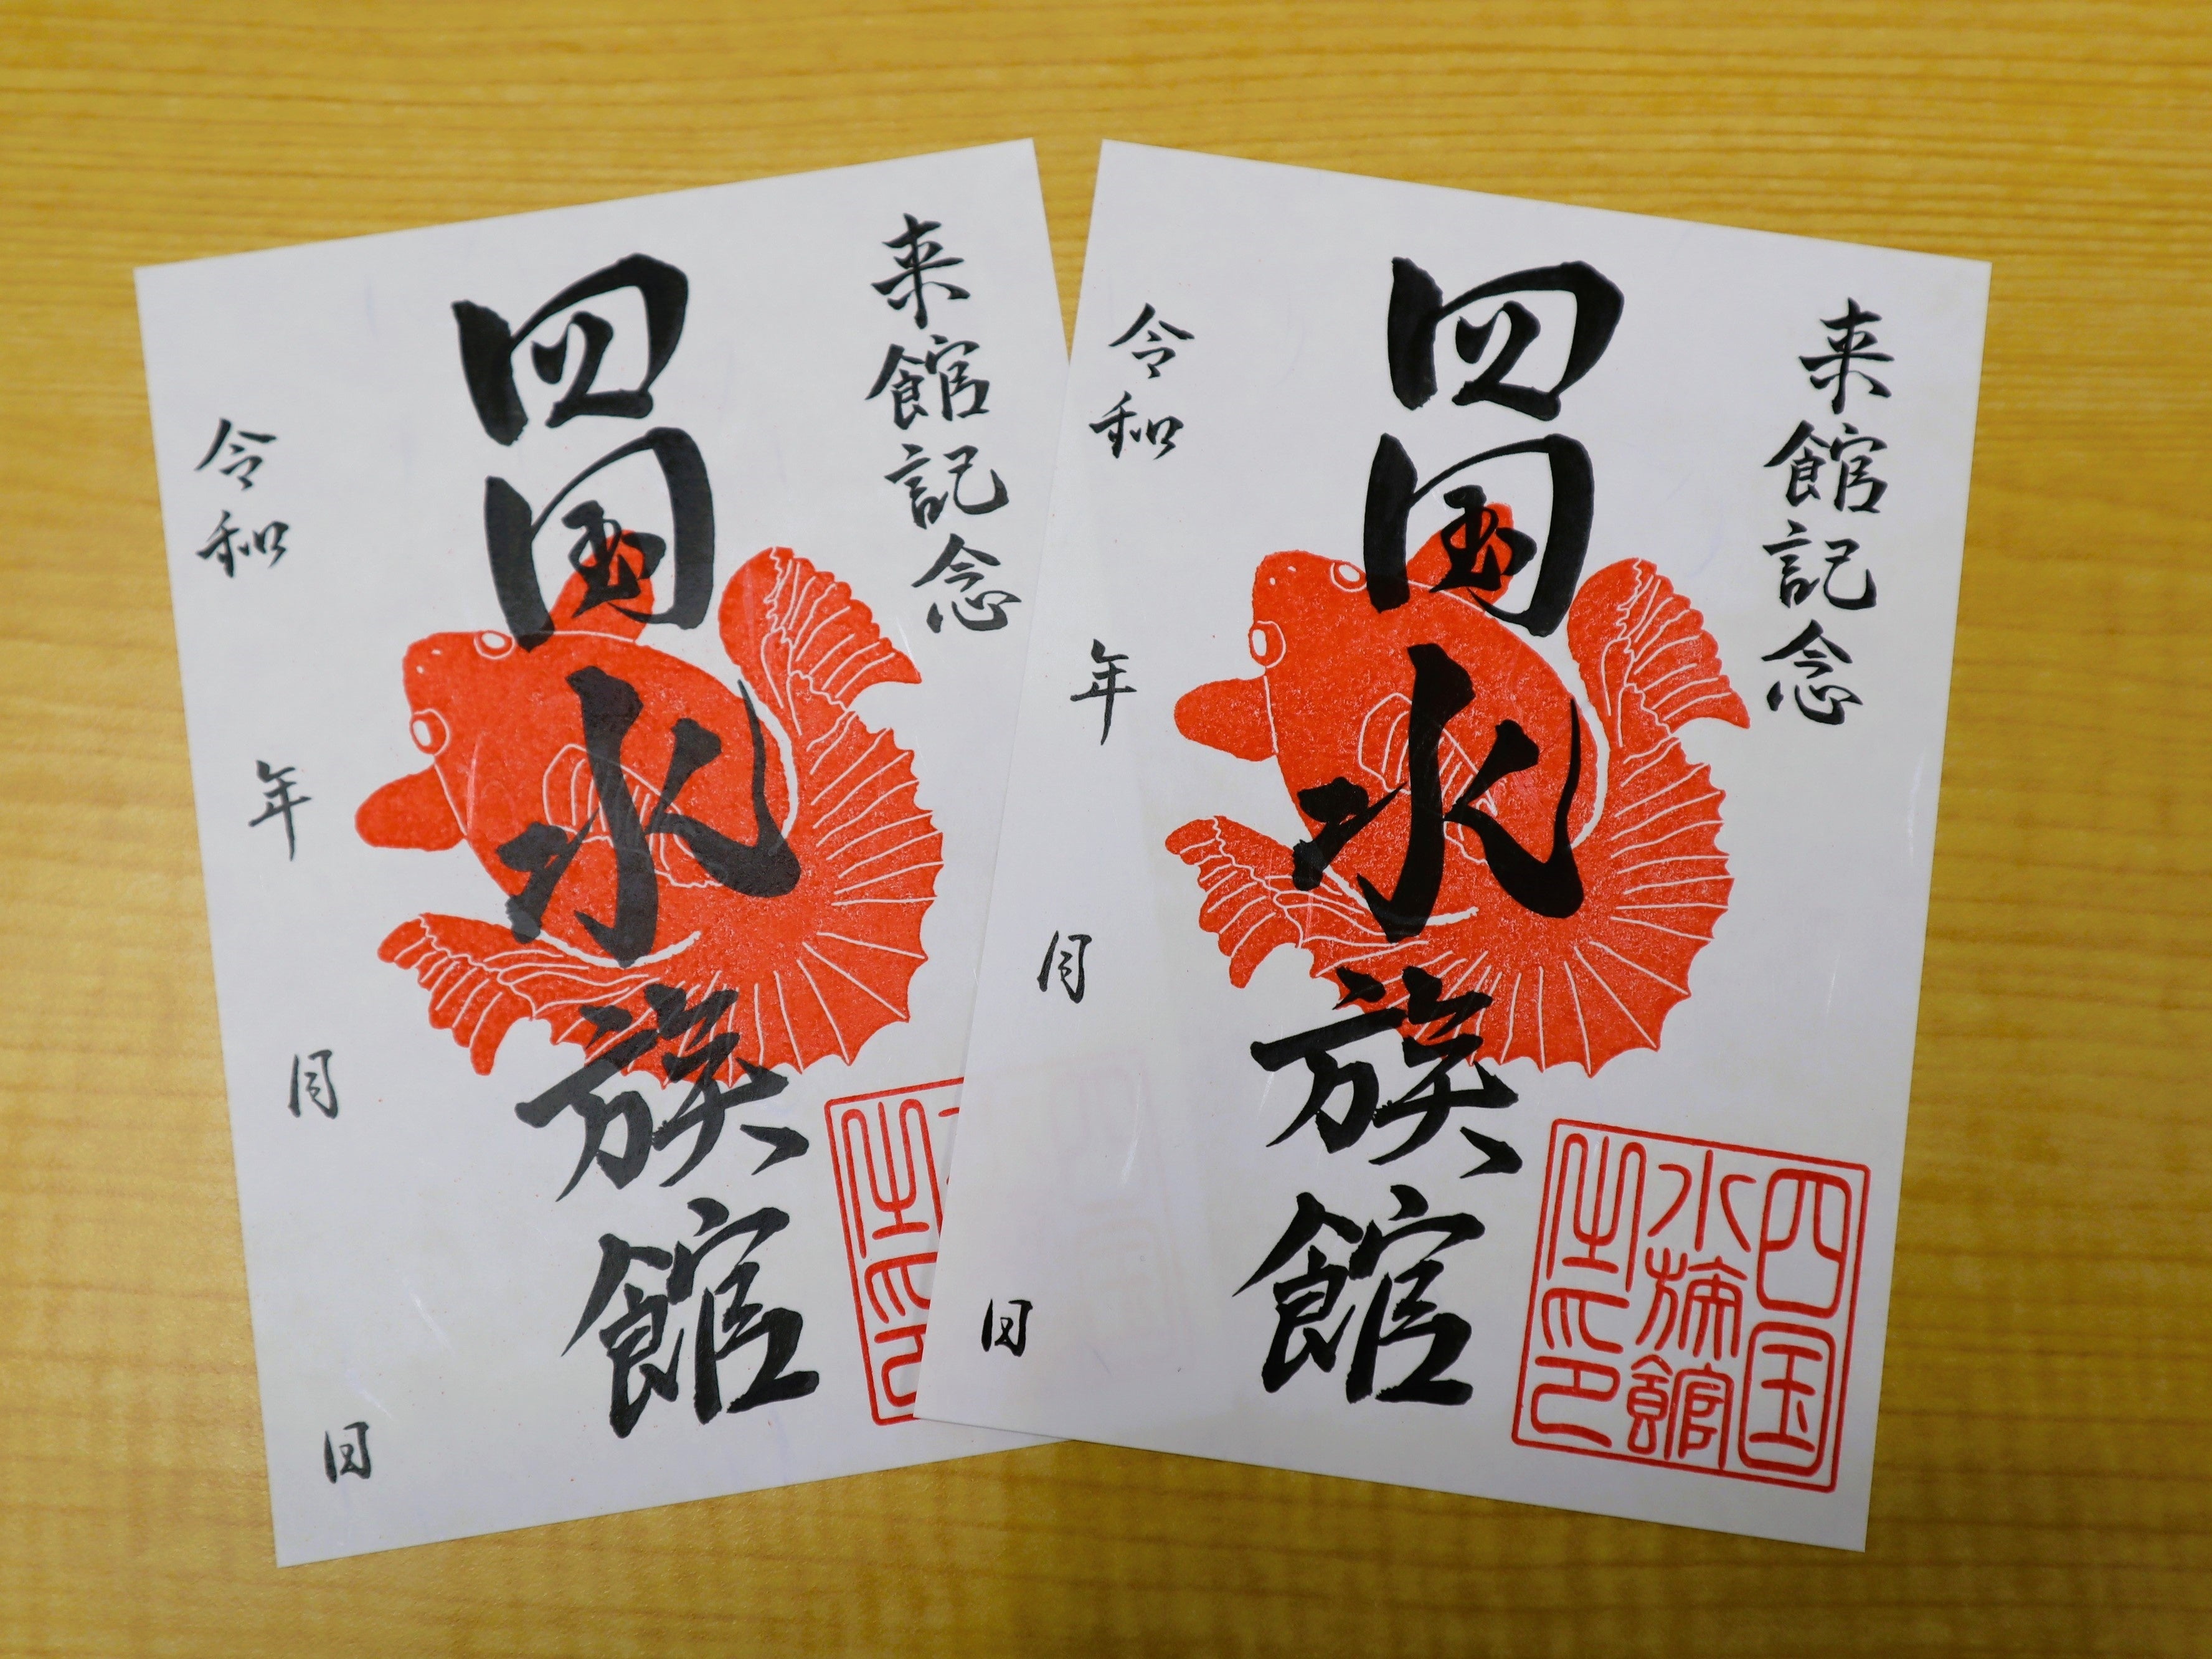 来館記念
四国水族館
令和 年 月 日
之印
来館記念
四国水族館
令和 年 月 日
四国
水族館
之印